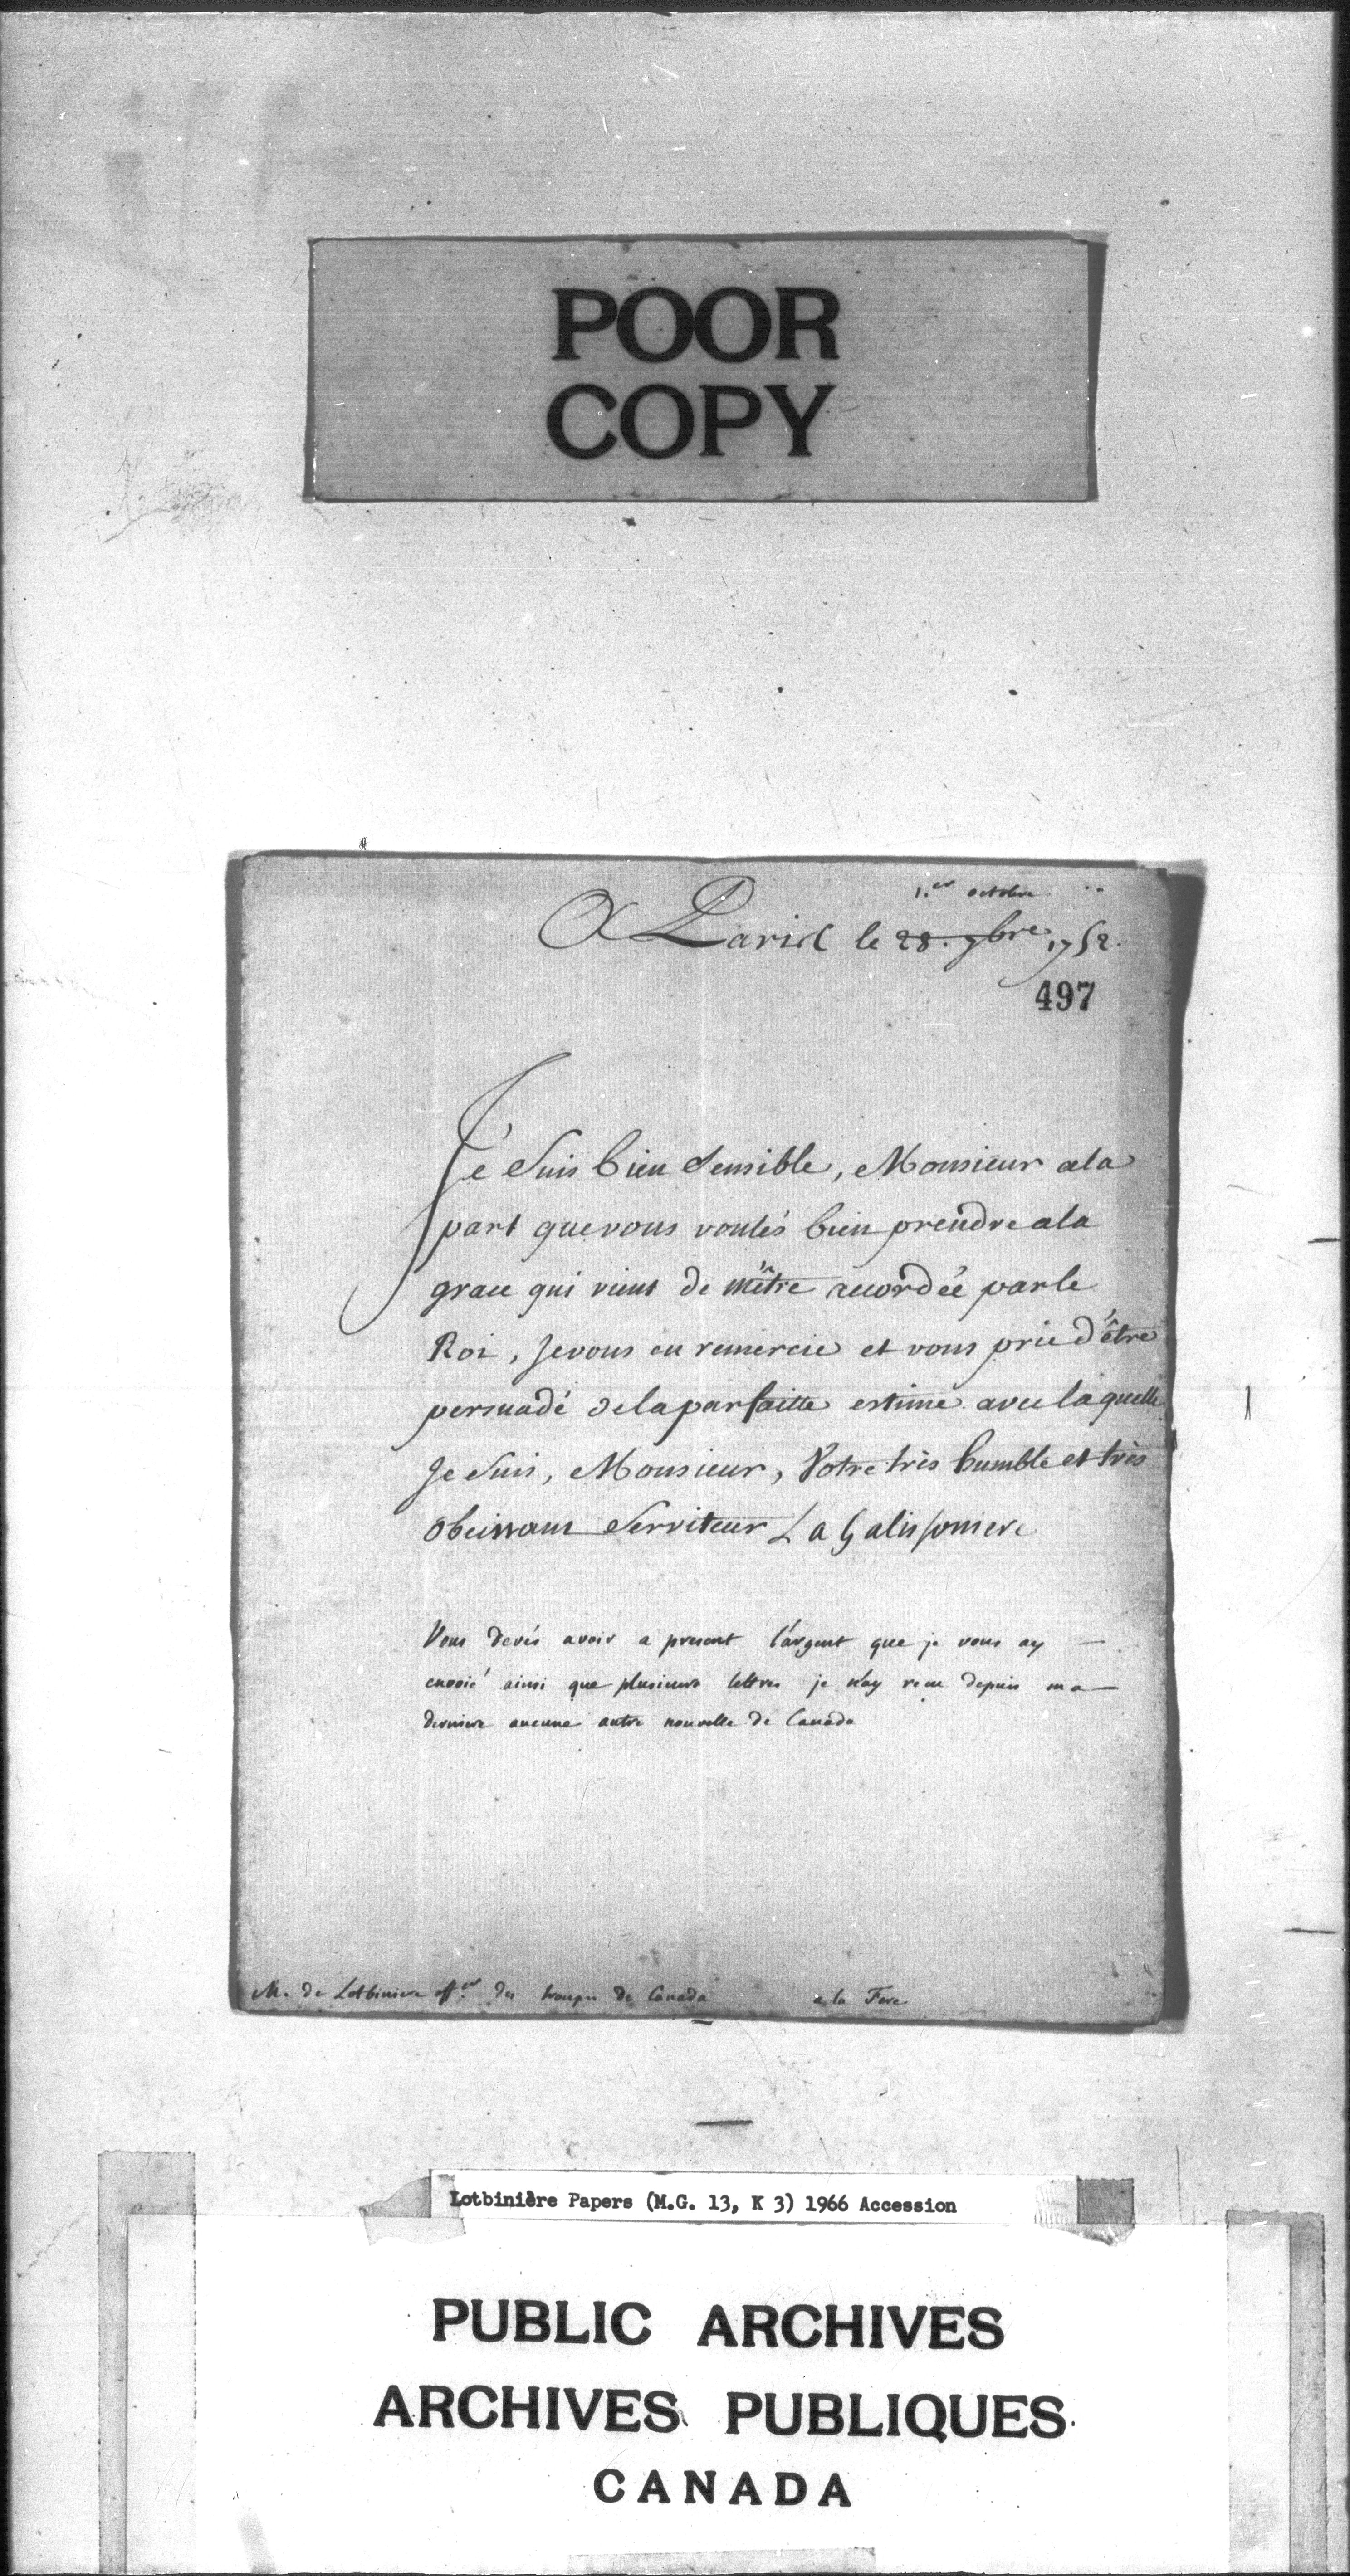 POOR
COPY
1.er octobre
A Paris le 28. 7bre 1752.
497
Je suis bien sensible, Monsieur ala
part que vous voulés bien prendre ala
grace qui vient de m'être acordée par le
Roi, Je vous en remercie et vous prie d'être
persuadé de la parfaitte estime avec laquelle
Je suis, Monsieur, Votre très humble et très
obeissant Serviteur La Galissoniere
Vous devés avoir a present l'argent que je vous ay
envoié ainsi que plusieurs lettres je n'ay reçu depuis ma
derniere aucune autre nouvelle de Canada
M. de Lotbiniere off.er des troupes de Canada a la Fere
Lotbinière Papers (M.G. 13, K 3) 1966 Accession
PUBLIC ARCHIVES
ARCHIVES PUBLIQUES
CANADA